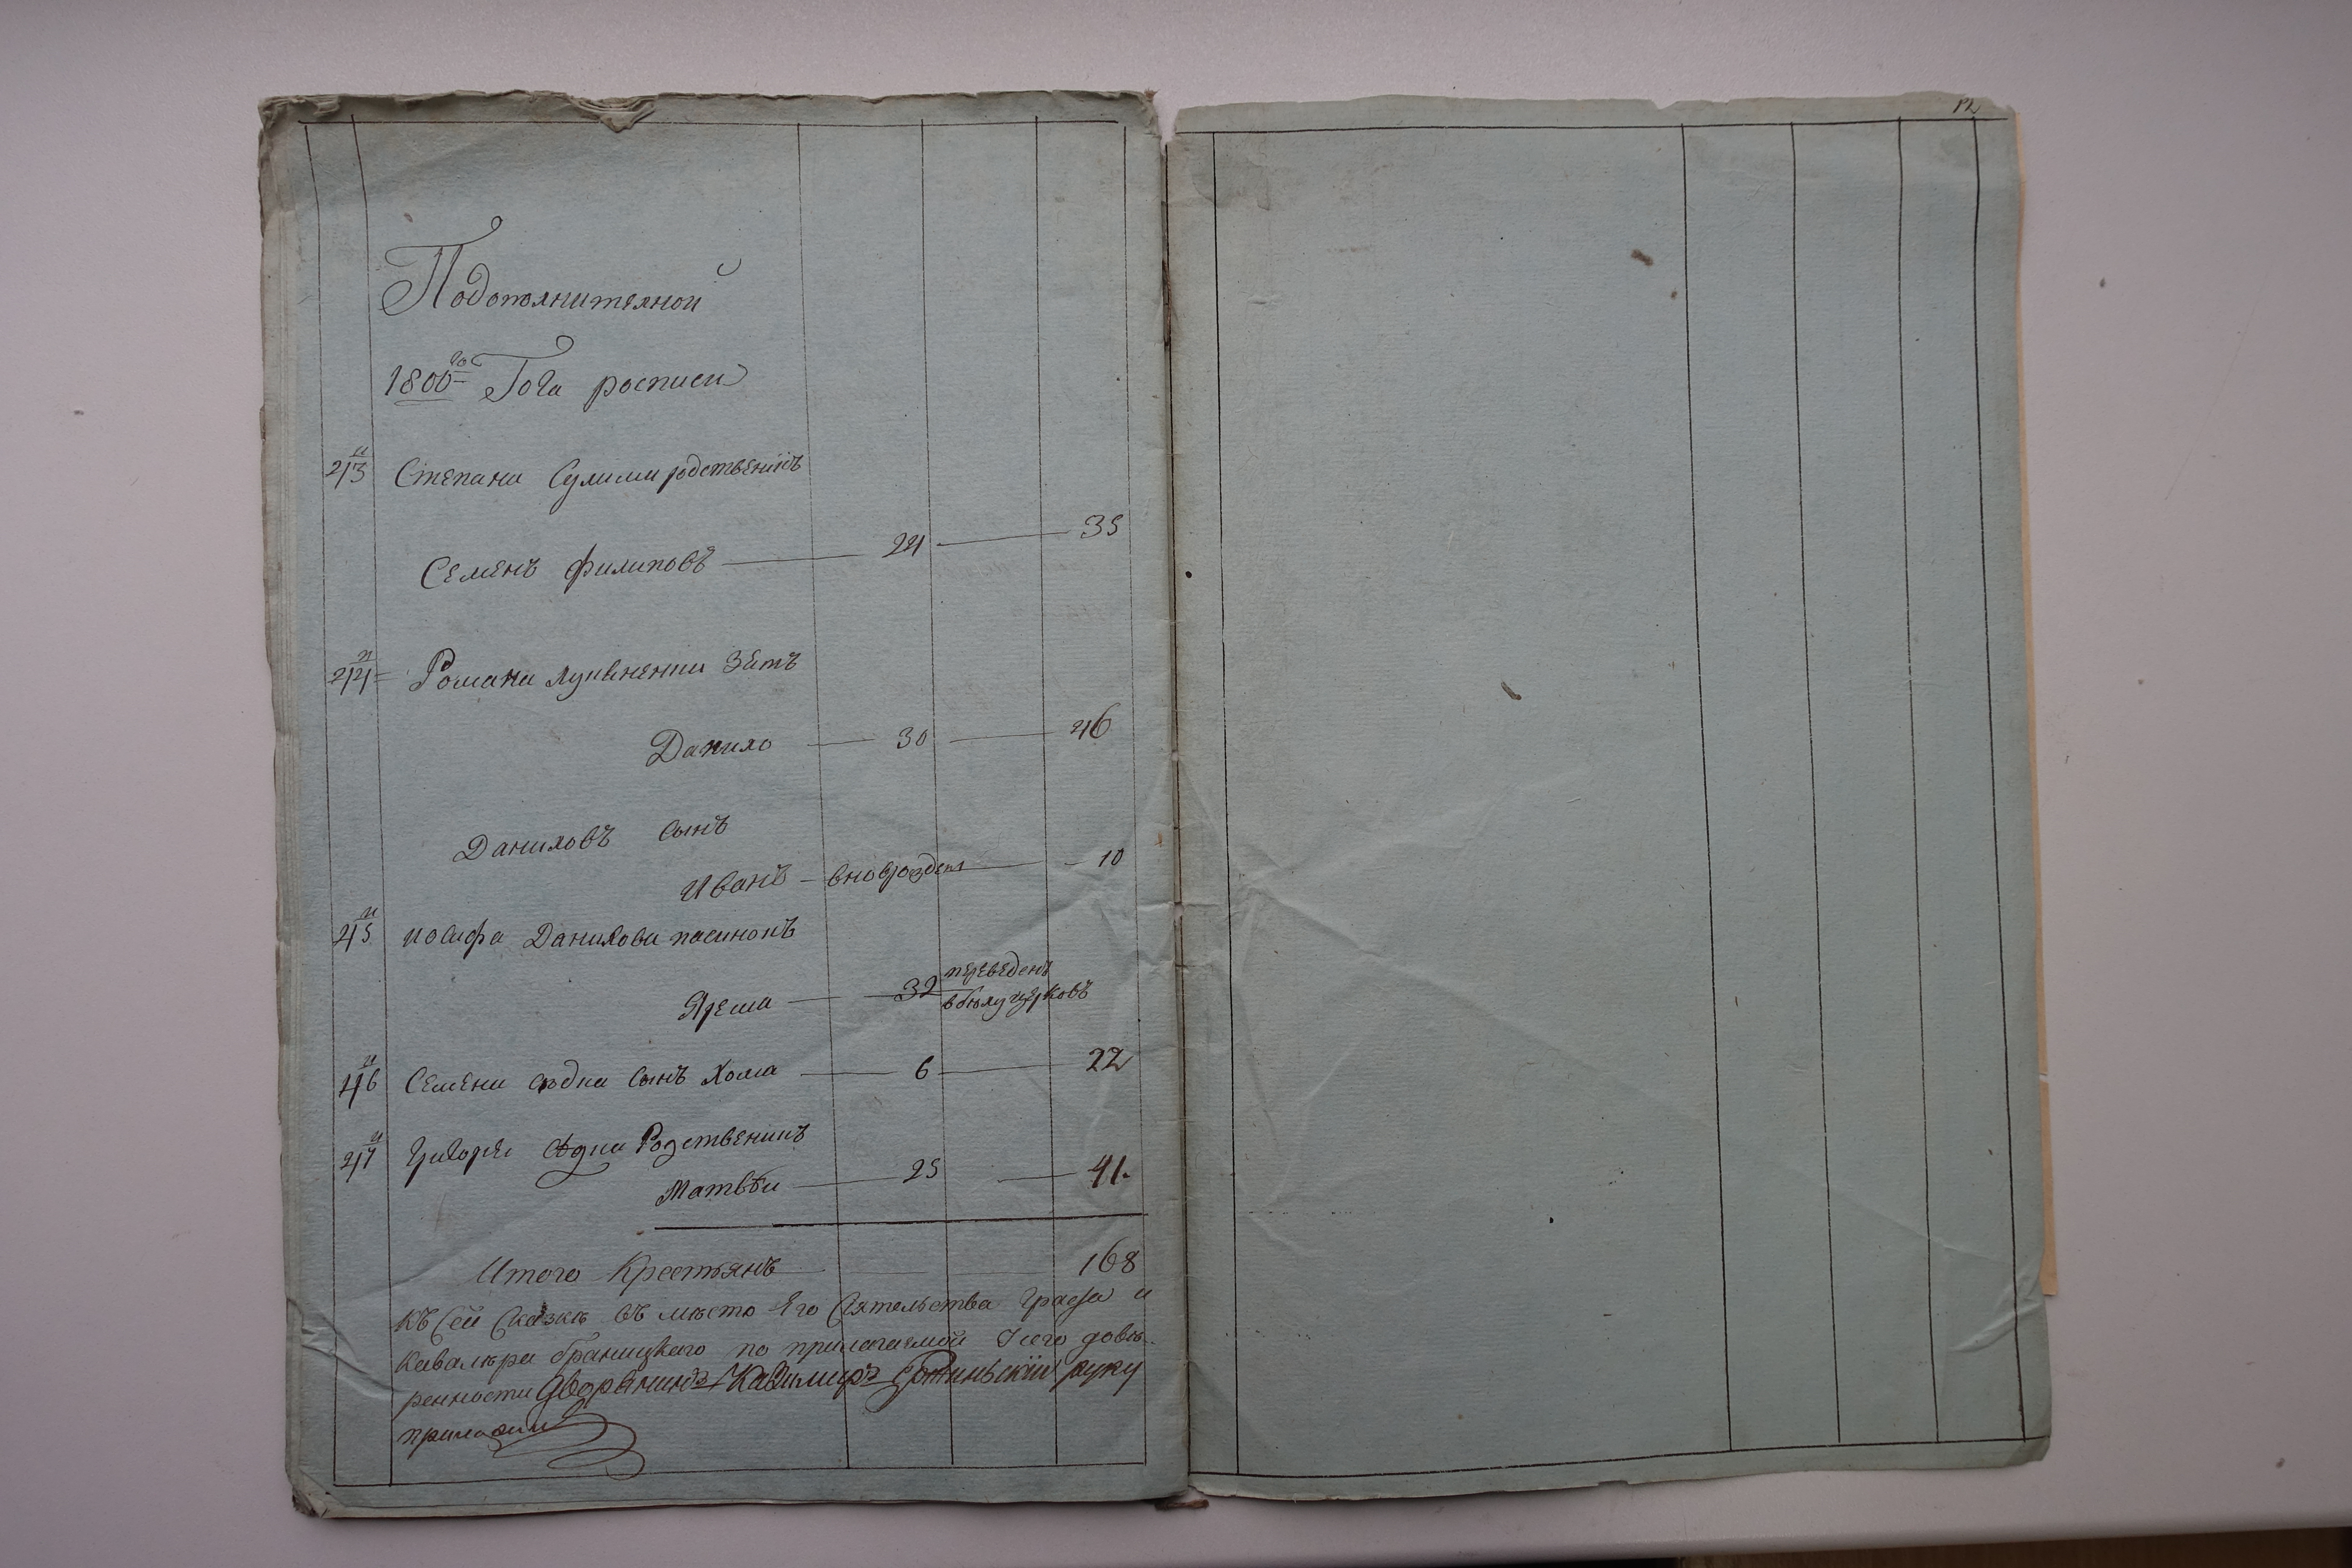 12
Подополнителной
1800го Года росписи
43й Степана Сулими родственикъ
Семенъ Филиповъ 24 35
44й Романа Лукьненки Зять
Данило 30 46
Даниловъ Сынъ
Иванъ вноврозден 10
45й Иосифа Данилова пасинокъ
Ярема 32 переведенъ
в белу церковъ
46й Семена Сѣдна Сынъ Хома 6 22
47й Григорея Сѣдна Родственикъ
Матвѣи 25 41.
Итого Крестьянъ 168
Къ Сей Сказкѣ въ мѣсто Его Сіятельства Графа и
Кавалѣра браницкаго по прилагаемой довѣ
ренности Дворянинъ Казимиръ руку
приложил